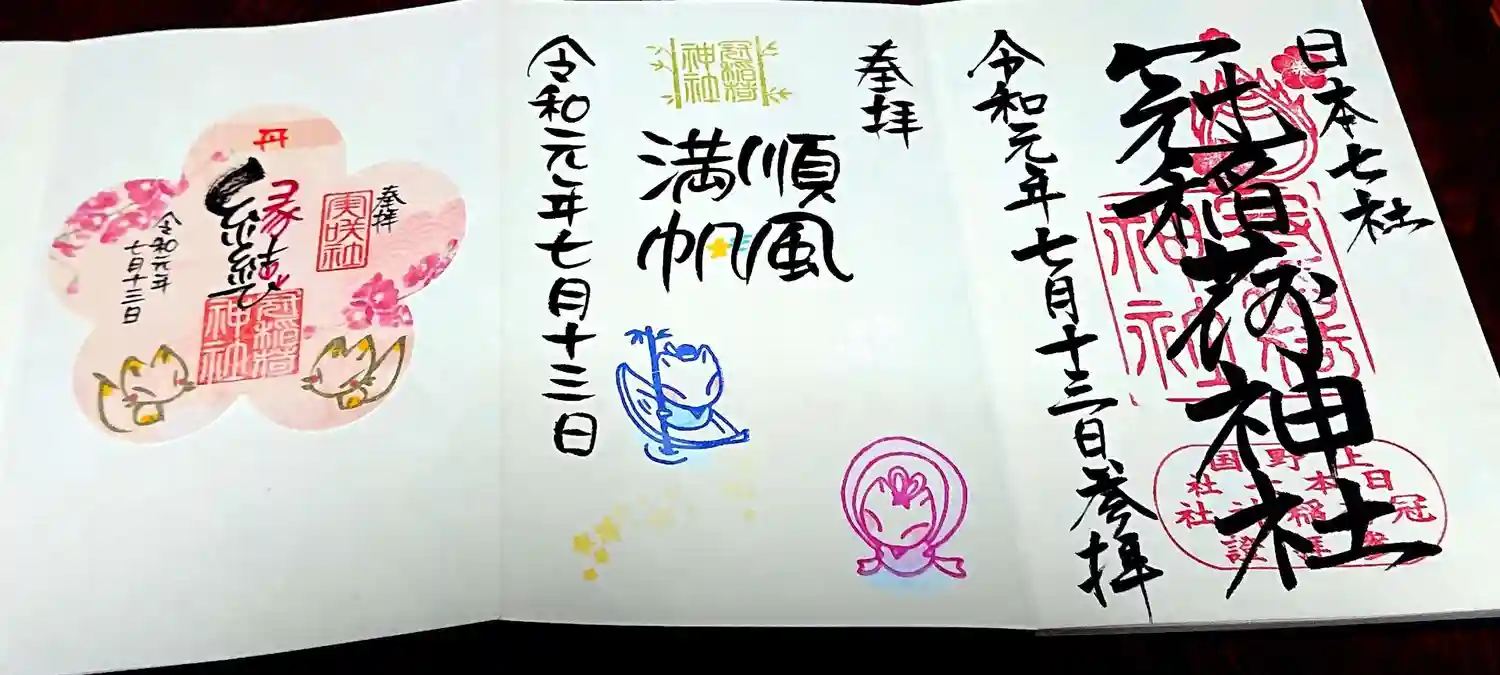 日本七社
冠稲荷神社
令和元年七月十三日参拝
奉拝
順風
満帆
冠稲荷
神社
令和元年七月十三日
奉拝
実咲社
縁結び
冠稲荷
神社
令和元年
七月十三日